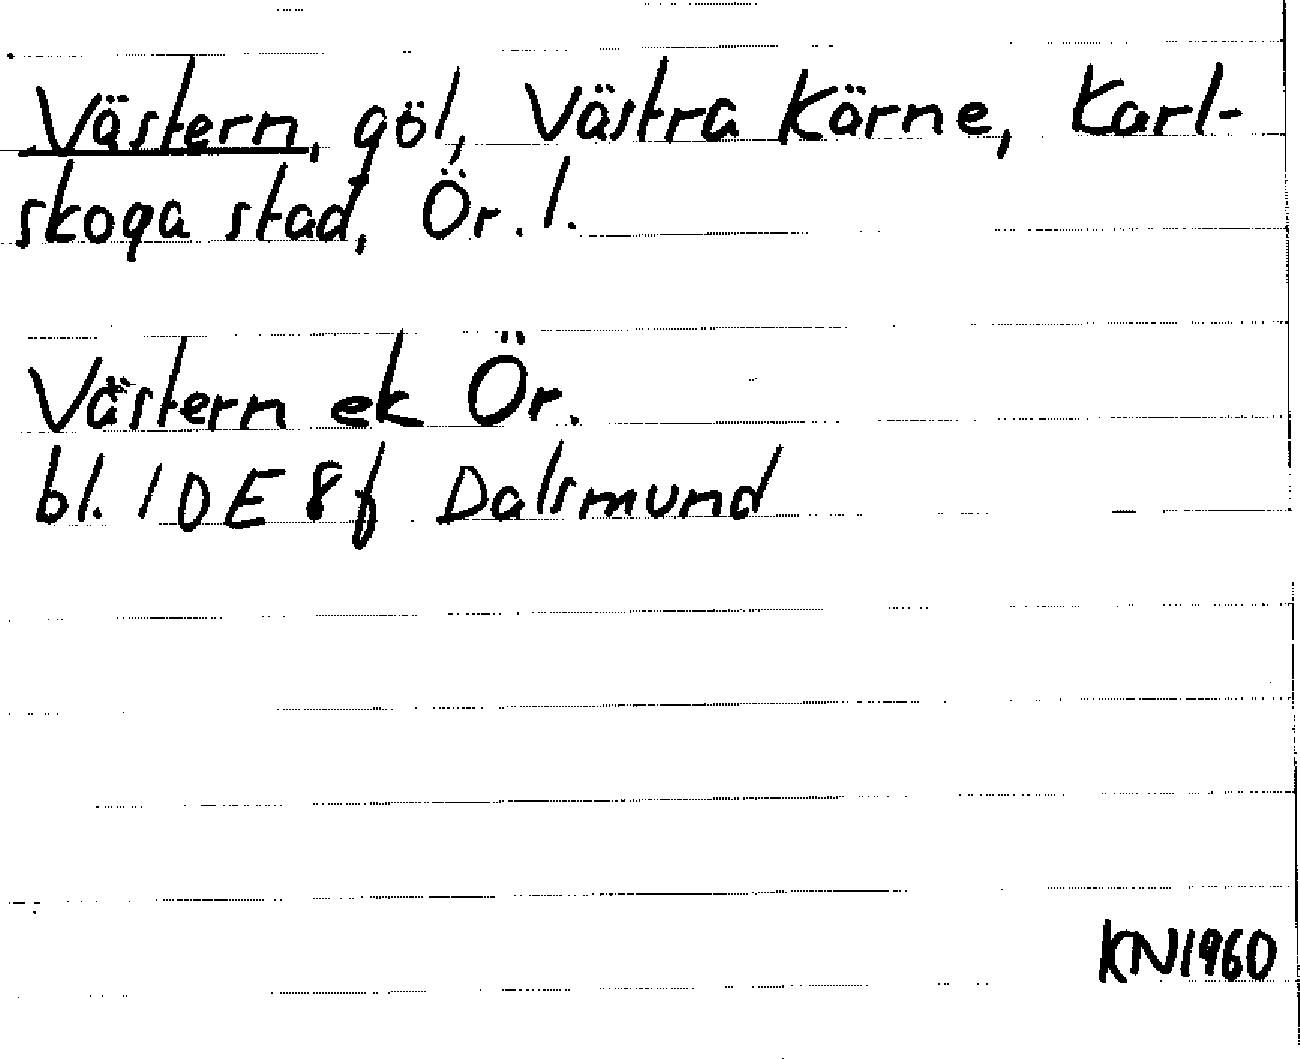 Västern, göl, Västra Kärne, Karl-
skoga stad, Ör. l.
Västern ek Ör.
bl. 10E 8f Dalsmund
KN1960